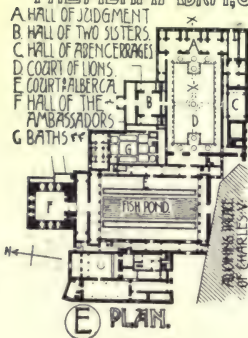 A. HALL OF JUDGMENT
B. HALL OF TWO SISTERS.
C. HALL OF ABENCERRAGES
D. COURT OF LIONS.
E. COURT OF ALBERCA
F. HALL OF THE
AMBASSADORS
G BATHS
A
B
C
D
G
E
F
FISH POND.
ADJOINING PALACE
OF CHARLES V
N
E PLAN.